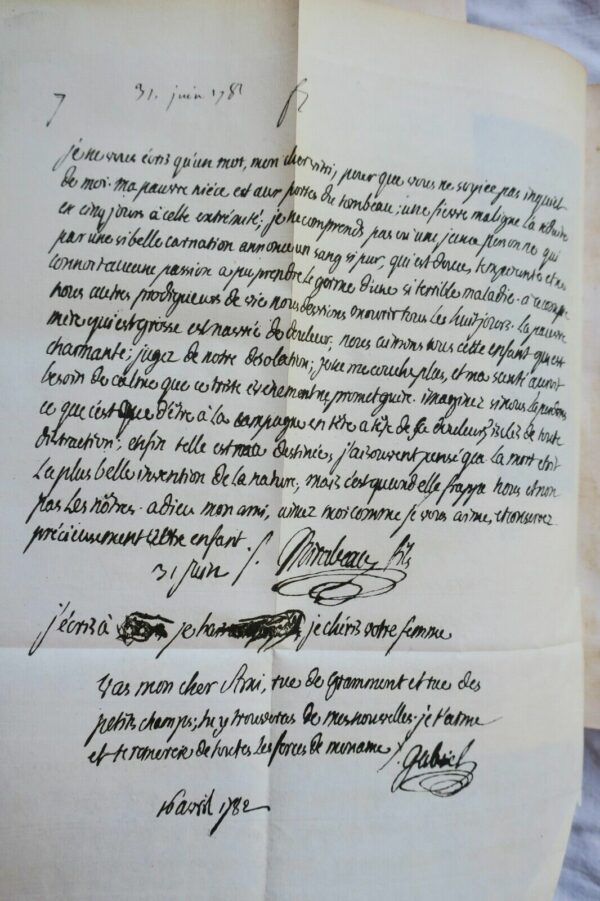 7 31. juin 178
je ne vous écris qu'un mot, mon cher ami, pour que vous ne soyiez pas inquiet
de moi. ma pauvre nièce est aux portes du tombeau; une fievre maligne la réduite
en cinq jours à cette extrémité; je ne comprends pas où une jeune personne qui
par une si belle carnation annonce un sang si pur, qui est douce, temperante et ne
connoit aucune passion a pu prendre le germe d'une si terrible maladie. a ce compte
nous autres prodigueurs de vie nous dessions mourir tous les huit jours. la pauvre
mère qui est grosse est navrée de douleur, nous aimons tous cette enfant qui est
charmante; jugez de notre désolation; je ne me couche plus, et ma santé auroit
besoin de calme que ce triste événement ne promet guère. imaginez si nous la perdons
ce que c'est que d'être à la campagne en tête a tête de sa douleur, isolés de toute
distraction; enfin telle est ma destinée, j'ai souvent pensé que la mort etoit
la plus belle invention de la nature, mais c'est quand elle frappe nous et non
pas les nôtres. adieu mon ami, aimez moi comme je vous aime, et conservez
précieusement votre enfant. Mirabeau fils
31 juin
j'écris à je je chéris votre femme
Vas mon cher Ami, rue de Grammont et rue des
petits champs; tu y trouveras de mes nouvelles. je t'aime
et te remercie de toutes les forces de mon ame. Gabriel
16 avril 1782